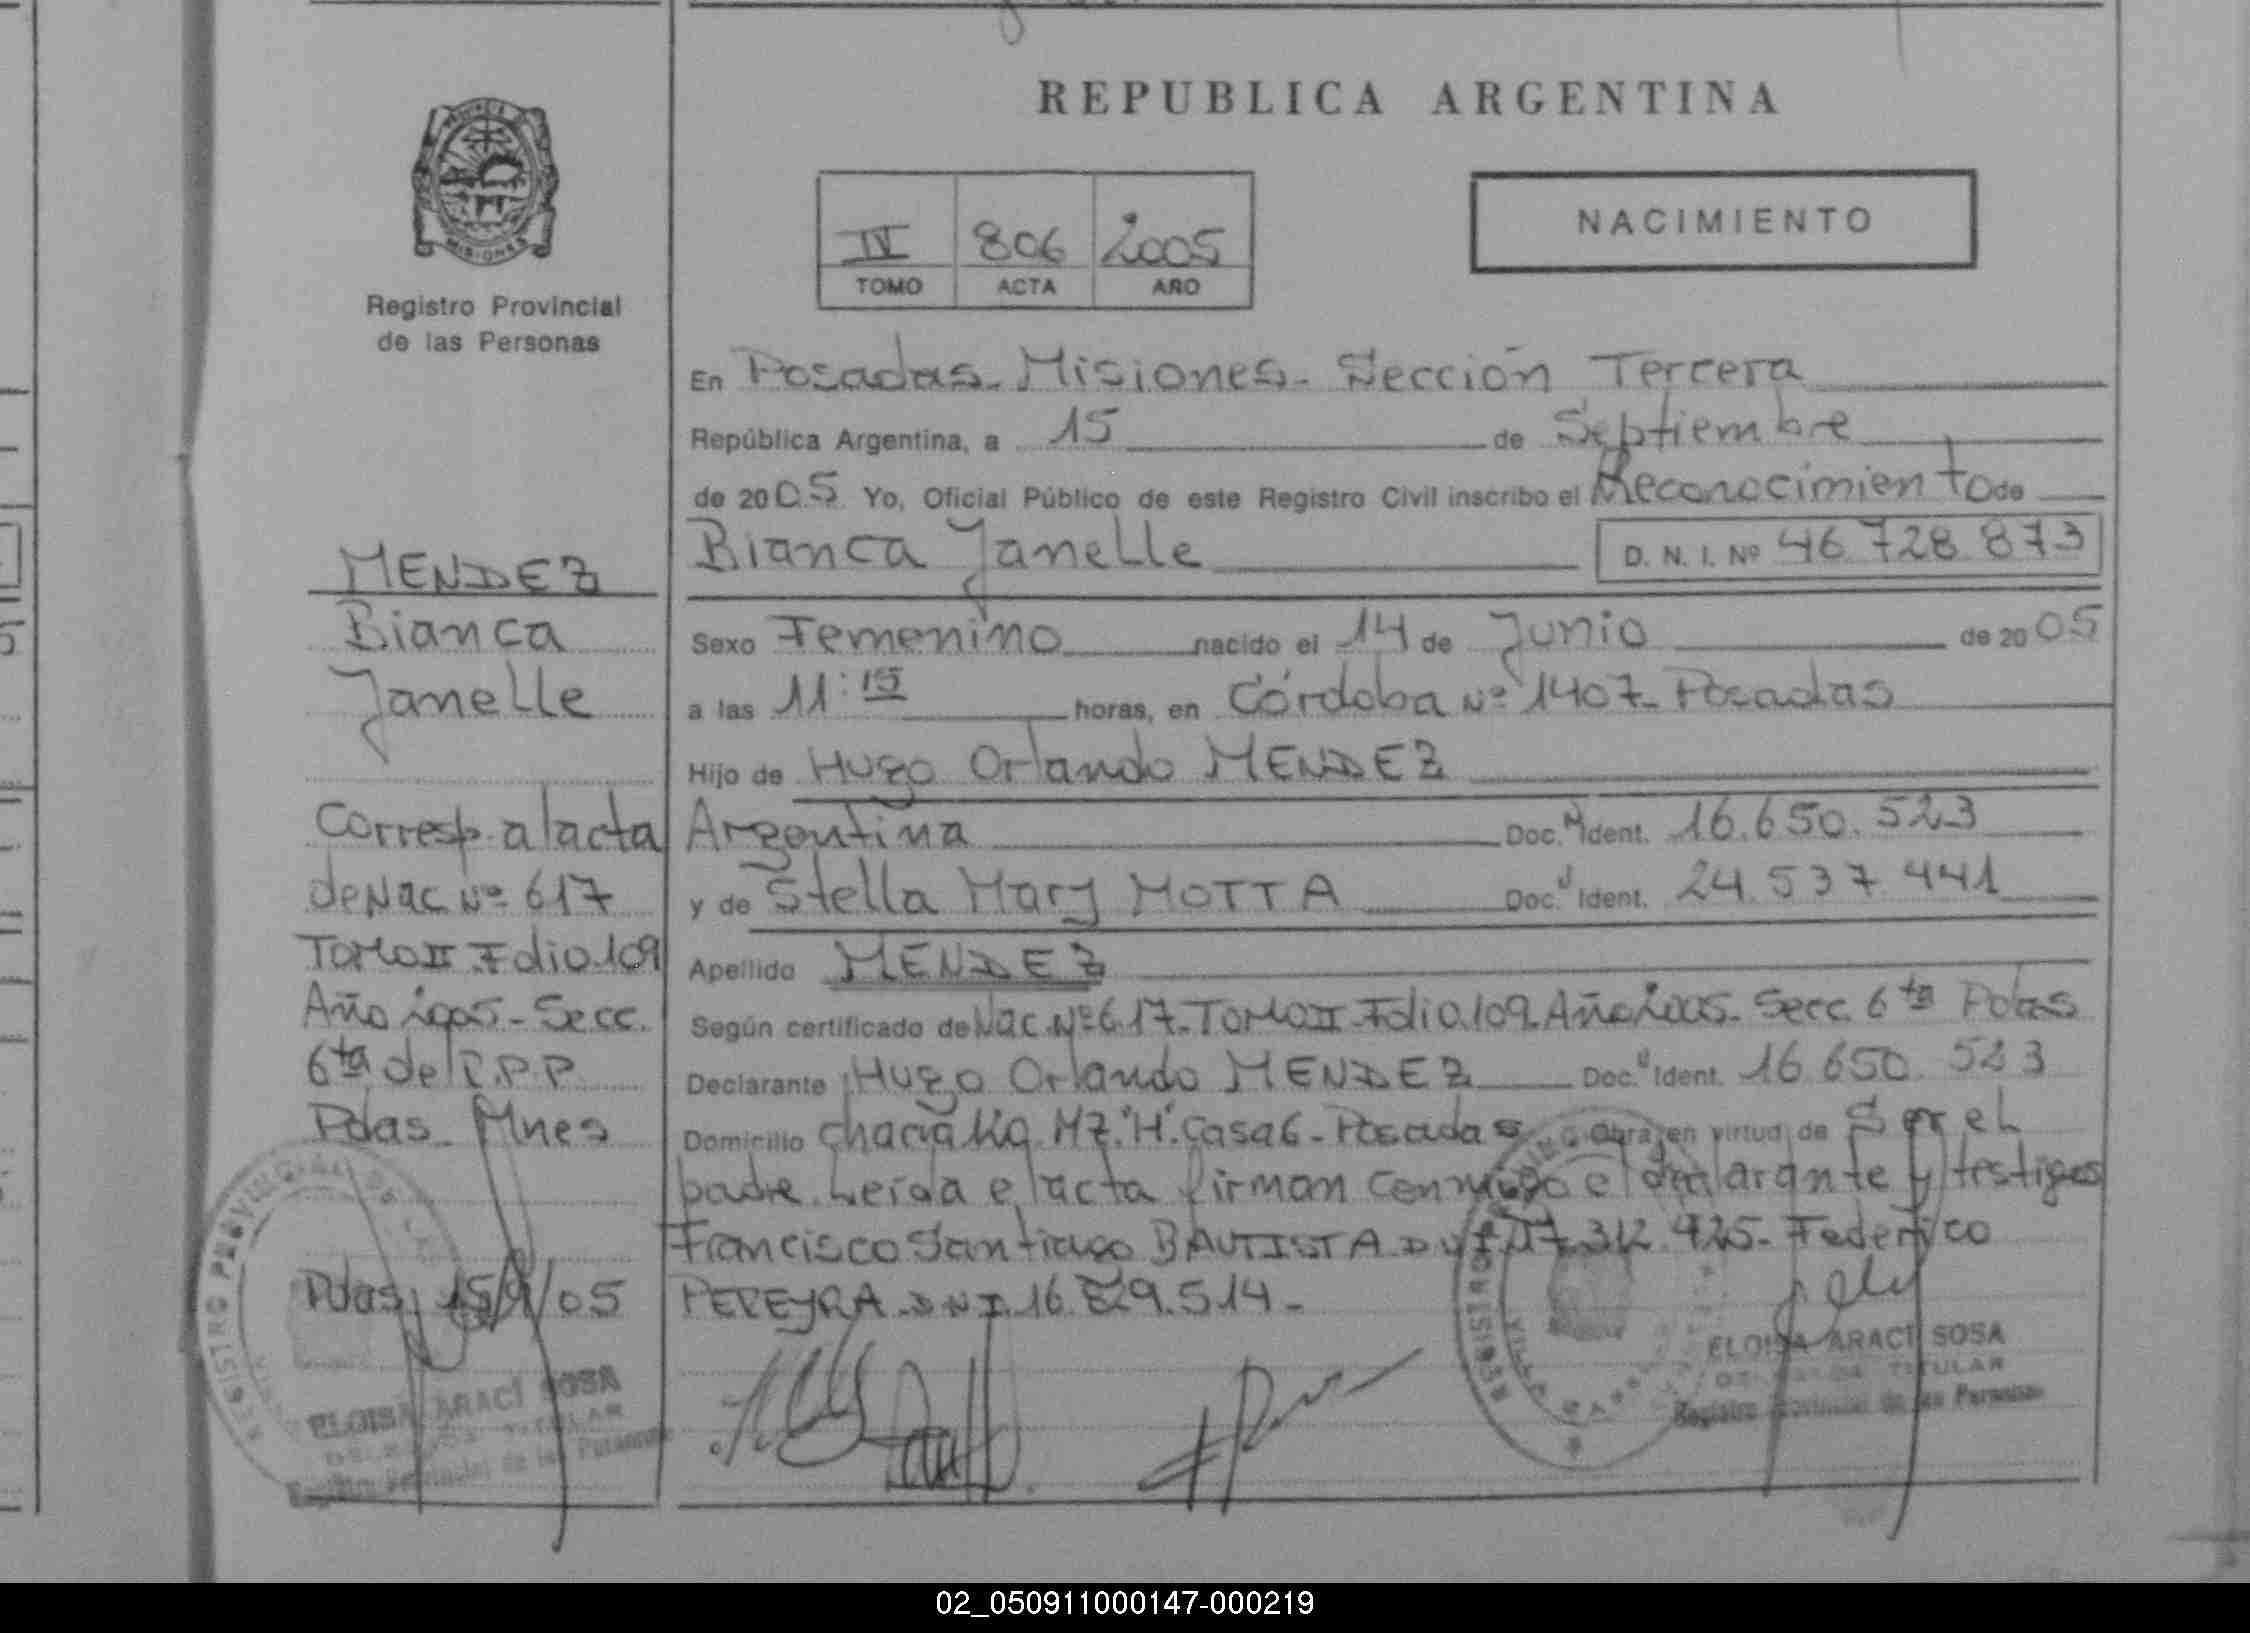 REPUBLICA ARGENTINA
MISIONES
Registro Provincial
de las Personas
IV 806 2005
TOMO ACTA AÑO
NACIMIENTO
En Posadas - Misiones - Sección Tercera
República Argentina, a 15 de Septiembre
de 2005 Yo, Oficial Público de este Registro Civil inscribo el Reconocimiento de
Bianca Janelle D. N. I. Nº 46.728.873
Sexo Femenino nacido el 14 de Junio de 2005
a las 11:15 horas, en Córdoba Nº 1407 - Posadas
Hijo de Hugo Orlando MENDEZ
Argentina Doc. Ident. 16.650.523
y de Stella Mary MOTTA Doc. Ident. 24.537.441
Apellido MENDEZ
Según certificado de Nac. Nº 617 - TOMO II - Folio 109 - Año 2005 - Secc. 6ta Pdas
Declarante Hugo Orlando MENDEZ Doc. Ident. 16.650.523
Domicilio Mz. "H" Casa 6 - Posadas Obra en virtud de Ser el
padre. Leída el acta firman conmigo el declarante y testigos
Francisco Santiago BAUTISTA Federico
PEREYRA DNI 16. 514 -
ELOISA ARACI SOSA
TITULAR
Registro Provincial de las Personas
MENDEZ
Bianca
Janelle
Corresp. al acta
de Nac Nº 617
TOMO II Folio 109
Año 2005 - Secc.
6ta del R.P.P
Pdas - Mnes
Pdas, 15/9/05
ELOISA ARACI SOSA
TITULAR
Registro Provincial de las Personas
02_050911000147-000219